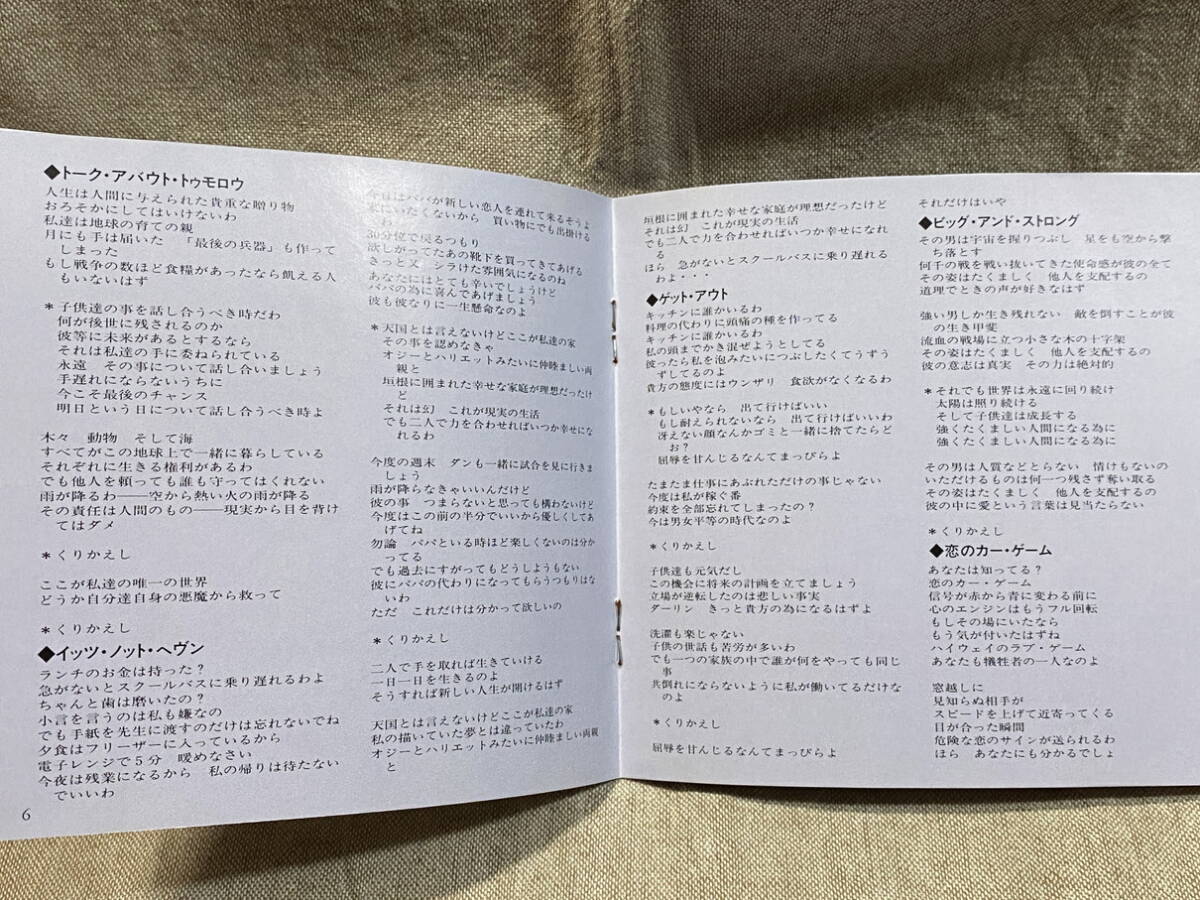 ◆トーク・アバウト・トゥモロウ
人生は人間に与えられた貴重な贈り物
おろそかにしてはいけないわ
私達は地球の育ての親
月にも手は届いた　「最後の兵器」も作って
しまった
もし戦争の数ほど食糧があったなら飢える人
もいないはず
＊子供達の事を話し合うべき時だわ
何が後世に残されるのか
彼等に未来があるとするなら
それは私達の手に委ねられている
永遠　その事について話し合いましょう
手遅れにならないうちに
今こそ最後のチャンス
明日という日について話し合うべき時よ
木々　動物　そして海
すべてがこの地球上で一緒に暮らしている
それぞれに生きる権利があるわ
でも他人を頼っても誰も守ってはくれない
雨が降るわ――空から熱い火の雨が降る
その責任は人間のもの――現実から目を背け
てはダメ
＊くりかえし
ここが私達の唯一の世界
どうか自分達自身の悪魔から救って
＊くりかえし
◆イッツ・ノット・ヘヴン
ランチのお金は持った？
急がないとスクールバスに乗り遅れるわよ
ちゃんと歯は磨いたの？
小言を言うのは私も嫌なの
でも手紙を先生に渡すのだけは忘れないでね
夕食はフリーザーに入っているから
電子レンジで５分　暖めなさい
今夜は残業になるから　私の帰りは待たない
でいいわ
6
今日はパパが新しい恋人を連れて来るそうよ
家にいたくないから　買い物にでも出掛ける
わ
30分位で戻るつもり
欲しがってたあの靴下を買ってきてあげる
きっと又　シラけた雰囲気になるのね
あなたにはとても辛いでしょうけど
パパの為に喜んであげましょう
彼も彼なりに一生懸命なのよ
＊天国とは言えないけどここが私達の家
その事を認めなきゃ
オジーとハリエットみたいに仲睦まじい両
親と
垣根に囲まれた幸せな家庭が理想だったけ
ど
それは幻　これが現実の生活
でも二人で力を合わせればいつか幸せにな
れるわ
今度の週末　ダンも一緒に試合を見に行きま
しょう
雨が降らなきゃいいんだけど
彼の事　つまらないと思っても構わないけど
今度はこの前の半分でいいから優しくしてあ
げてね
勿論　パパといる時ほど楽しくないのは分か
ってる
でも過去にすがってもどうしようもない
彼にパパの代わりになってもらうつもりはな
いわ
ただ　これだけは分かって欲しいの
＊くりかえし
二人で手を取れば生きていける
一日一日を生きるのよ
そうすれば新しい人生が開けるはず
天国とは言えないけどここが私達の家
私の描いていた夢とは違っていたわ
オジーとハリエットみたいに仲睦ましい両親
と
垣根に囲まれた幸せな家庭が理想だったけど
それは幻　これが現実の生活
でも二人で力を合わせればいつか幸せになれ
るわ
ほら　急がないとスクールバスに乗り遅れる
わよ・・・
◆ゲット・アウト
キッチンに誰かいるわ
料理の代わりに頭痛の種を作ってる
キッチンに誰かいるわ
私の頭までかき混ぜようとしてる
彼ったら私を泡みたいにつぶしたくてうずう
ずしてるのよ
貴方の態度にはウンザリ　食欲がなくなるわ
＊もしいやなら　出て行けばいい
もし耐えられないなら　出て行けばいいわ
冴えない顔なんかゴミと一緒に捨てたらど
お？
屈辱を甘んじるなんてまっぴらよ
たまたま仕事にあぶれただけの事じゃない
今度は私が稼ぐ番
約束を全部忘れてしまったの？
今は男女平等の時代なのよ
＊くりかえし
子供達も元気だし
この機会に将来の計画を立てましょう
立場が逆転したのは悲しい事実
ダーリン　きっと貴方の為になるはずよ
洗濯も楽じゃない
子供の世話も苦労が多いわ
でも一つの家族の中で誰が何をやっても同じ
事
共倒れにならないように私が働いてるだけな
のよ
＊くりかえし
屈辱を甘んじるなんてまっぴらよ
それだけはいや
◆ビッグ・アンド・ストロング
その男は宇宙を握りつぶし　星をも空から撃
ち落とす
何千の戦を戦い抜いてきた使命感が彼の全て
その姿はたくましく　他人を支配するの
道理でときの声が好きなはず
強い男しか生き残れない　敵を倒すことが彼
の生き甲斐
流血の戦場に立つ小さな木の十字架
その姿はたくましく　他人を支配するの
彼の意志は真実　その力は絶対的
＊それでも世界は永遠に回り続け
太陽は照り続ける
そして子供達は成長する
強くたくましい人間になる為に
強くたくましい人間になる為に
その男は人質などとらない　情けもないの
いただけるものは何一つ残さず奪い取る
その姿はたくましく　他人を支配するの
彼の中に愛という言葉は見当たらない
＊くりかえし
◆恋のカー・ゲーム
あなたは知ってる？
恋のカー・ゲーム
信号が赤から青に変わる前に
心のエンジンはもうフル回転
もしその場にいたなら
もう気が付いたはずね
ハイウェイのラブ・ゲーム
あなたも犠牲者の一人なのよ
窓越しに
見知らぬ相手が
スピードを上げて近寄ってくる
目が合った瞬間
危険な恋のサインが送られるわ
ほら　あなたにも分かるでしょ